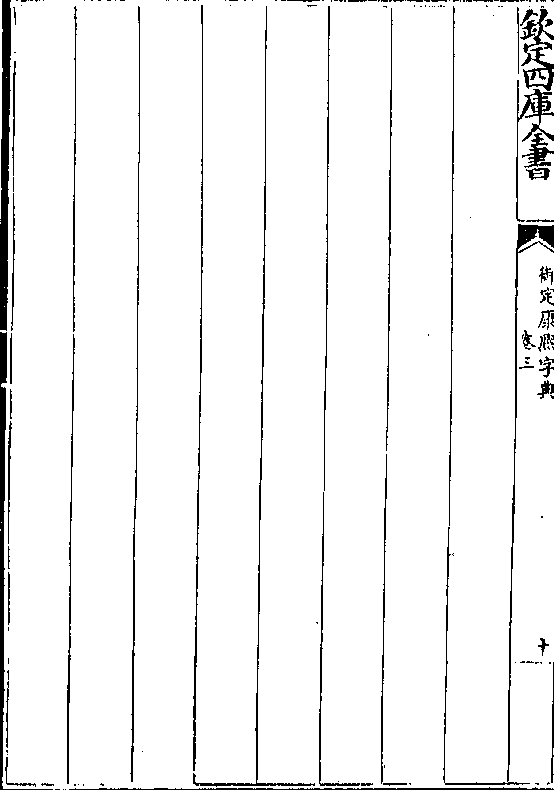 欽定四庫全書
御定康熙字典
卷三
十